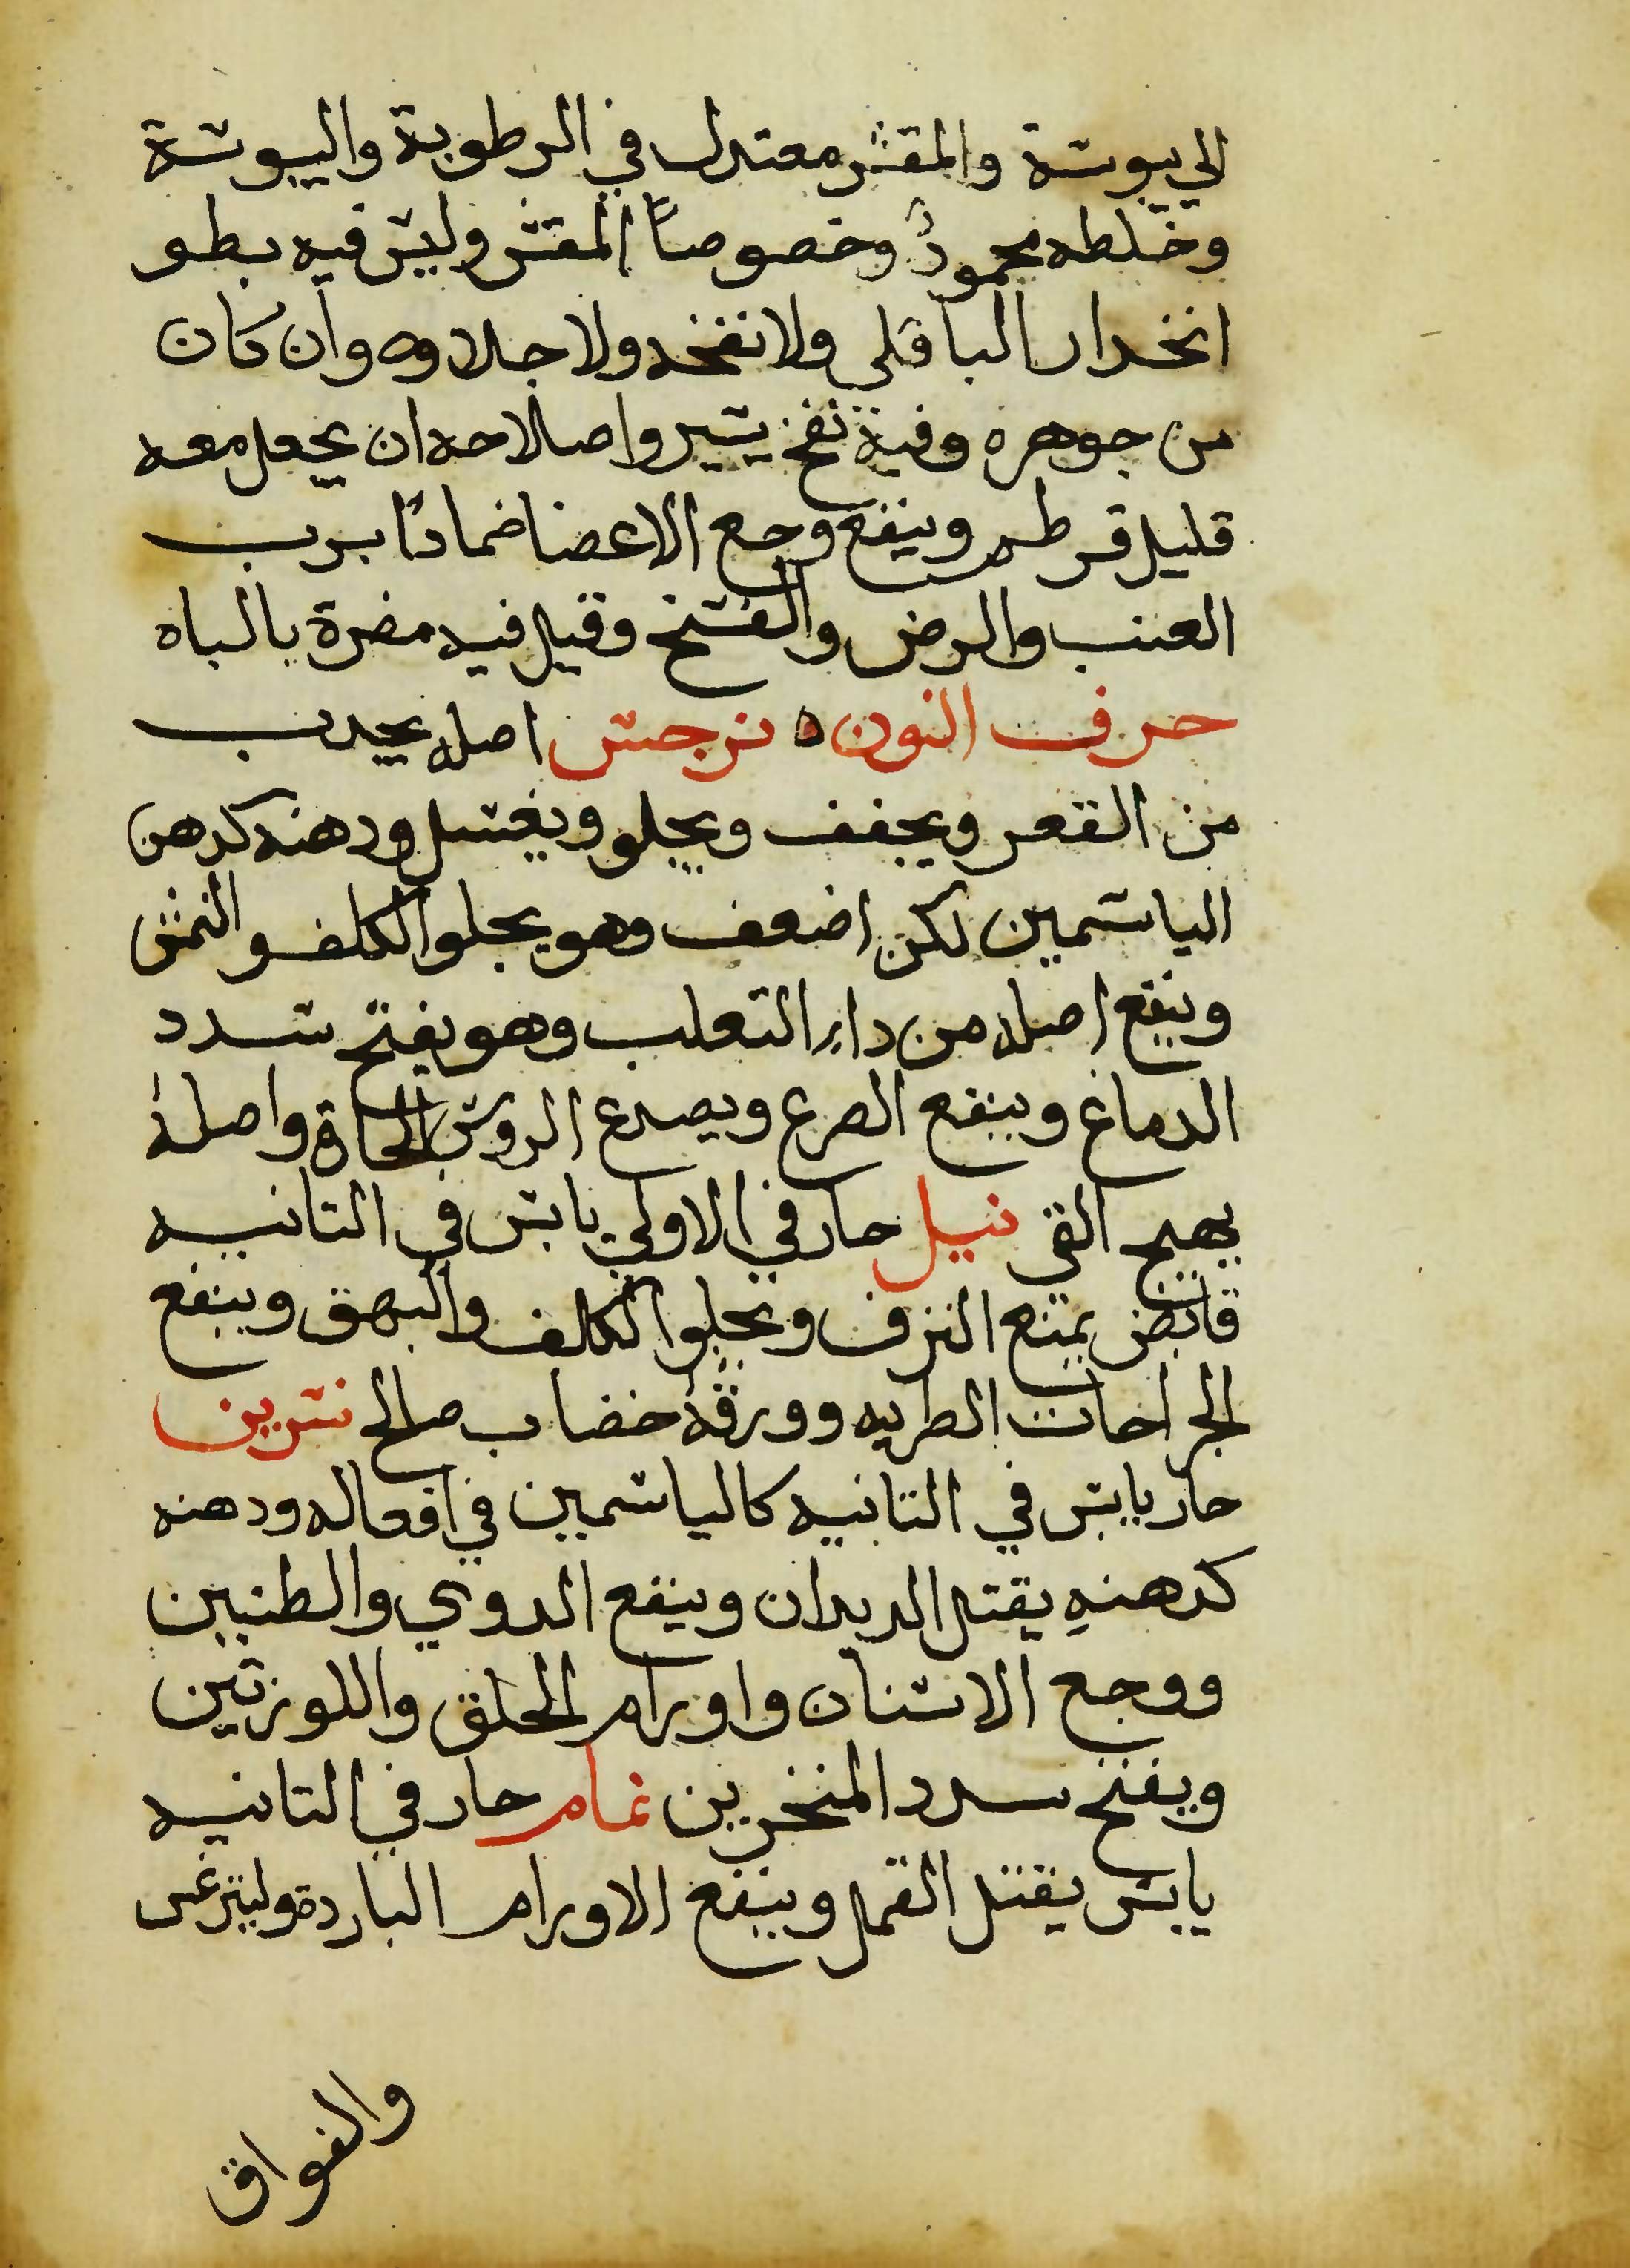 الي يبوسة والمقشر معتدل في الرطوبة واليبوسة
وخلطه محمودٌ وخصوصاً المقشر وليس فيه بطو
انخدار الباقلى ولا نفخه ولا جلاوه وان كان
من جوهره وفية نفخ يسير واصلاحه ان يجعل معه
قليل قرطم وينفع وجع الاعضا ضمادًا برب
العنب والرض والفسخ وقيل فيه مضرة بالباه
حرف النون ه نرجس اصله يجدب
من القعر ويجفف ويجلو ويغسل ودهنه كدهن
الياسمين لكن اضعف وهو يجلوا الكلف والنمش
وينفع اصله من داء التعلب وهو يفتح سدد
الدماغ وينفع الصرع ويصدع الروس الحاة واصله
يهيج القي نيل حار في الاولي يابس في التانيه
قابض يمنع النزف ويجلوا الكلف والبهق وينفع
الجراحات الطريه وورقه خضاب صالح نسرين
حار يابس في التانيه كالياسمين في افعاله ودهنه
كدهنهِ يقتل الديدان وينفع الدوي والطنين
ووجع الاسنان واورام الحلق واللوزتين
ويفتح سدد المنخرين نمام حار في التانيه
يابس يقتل القمل وينفع الاورام الباردة وليترغس
والفواق